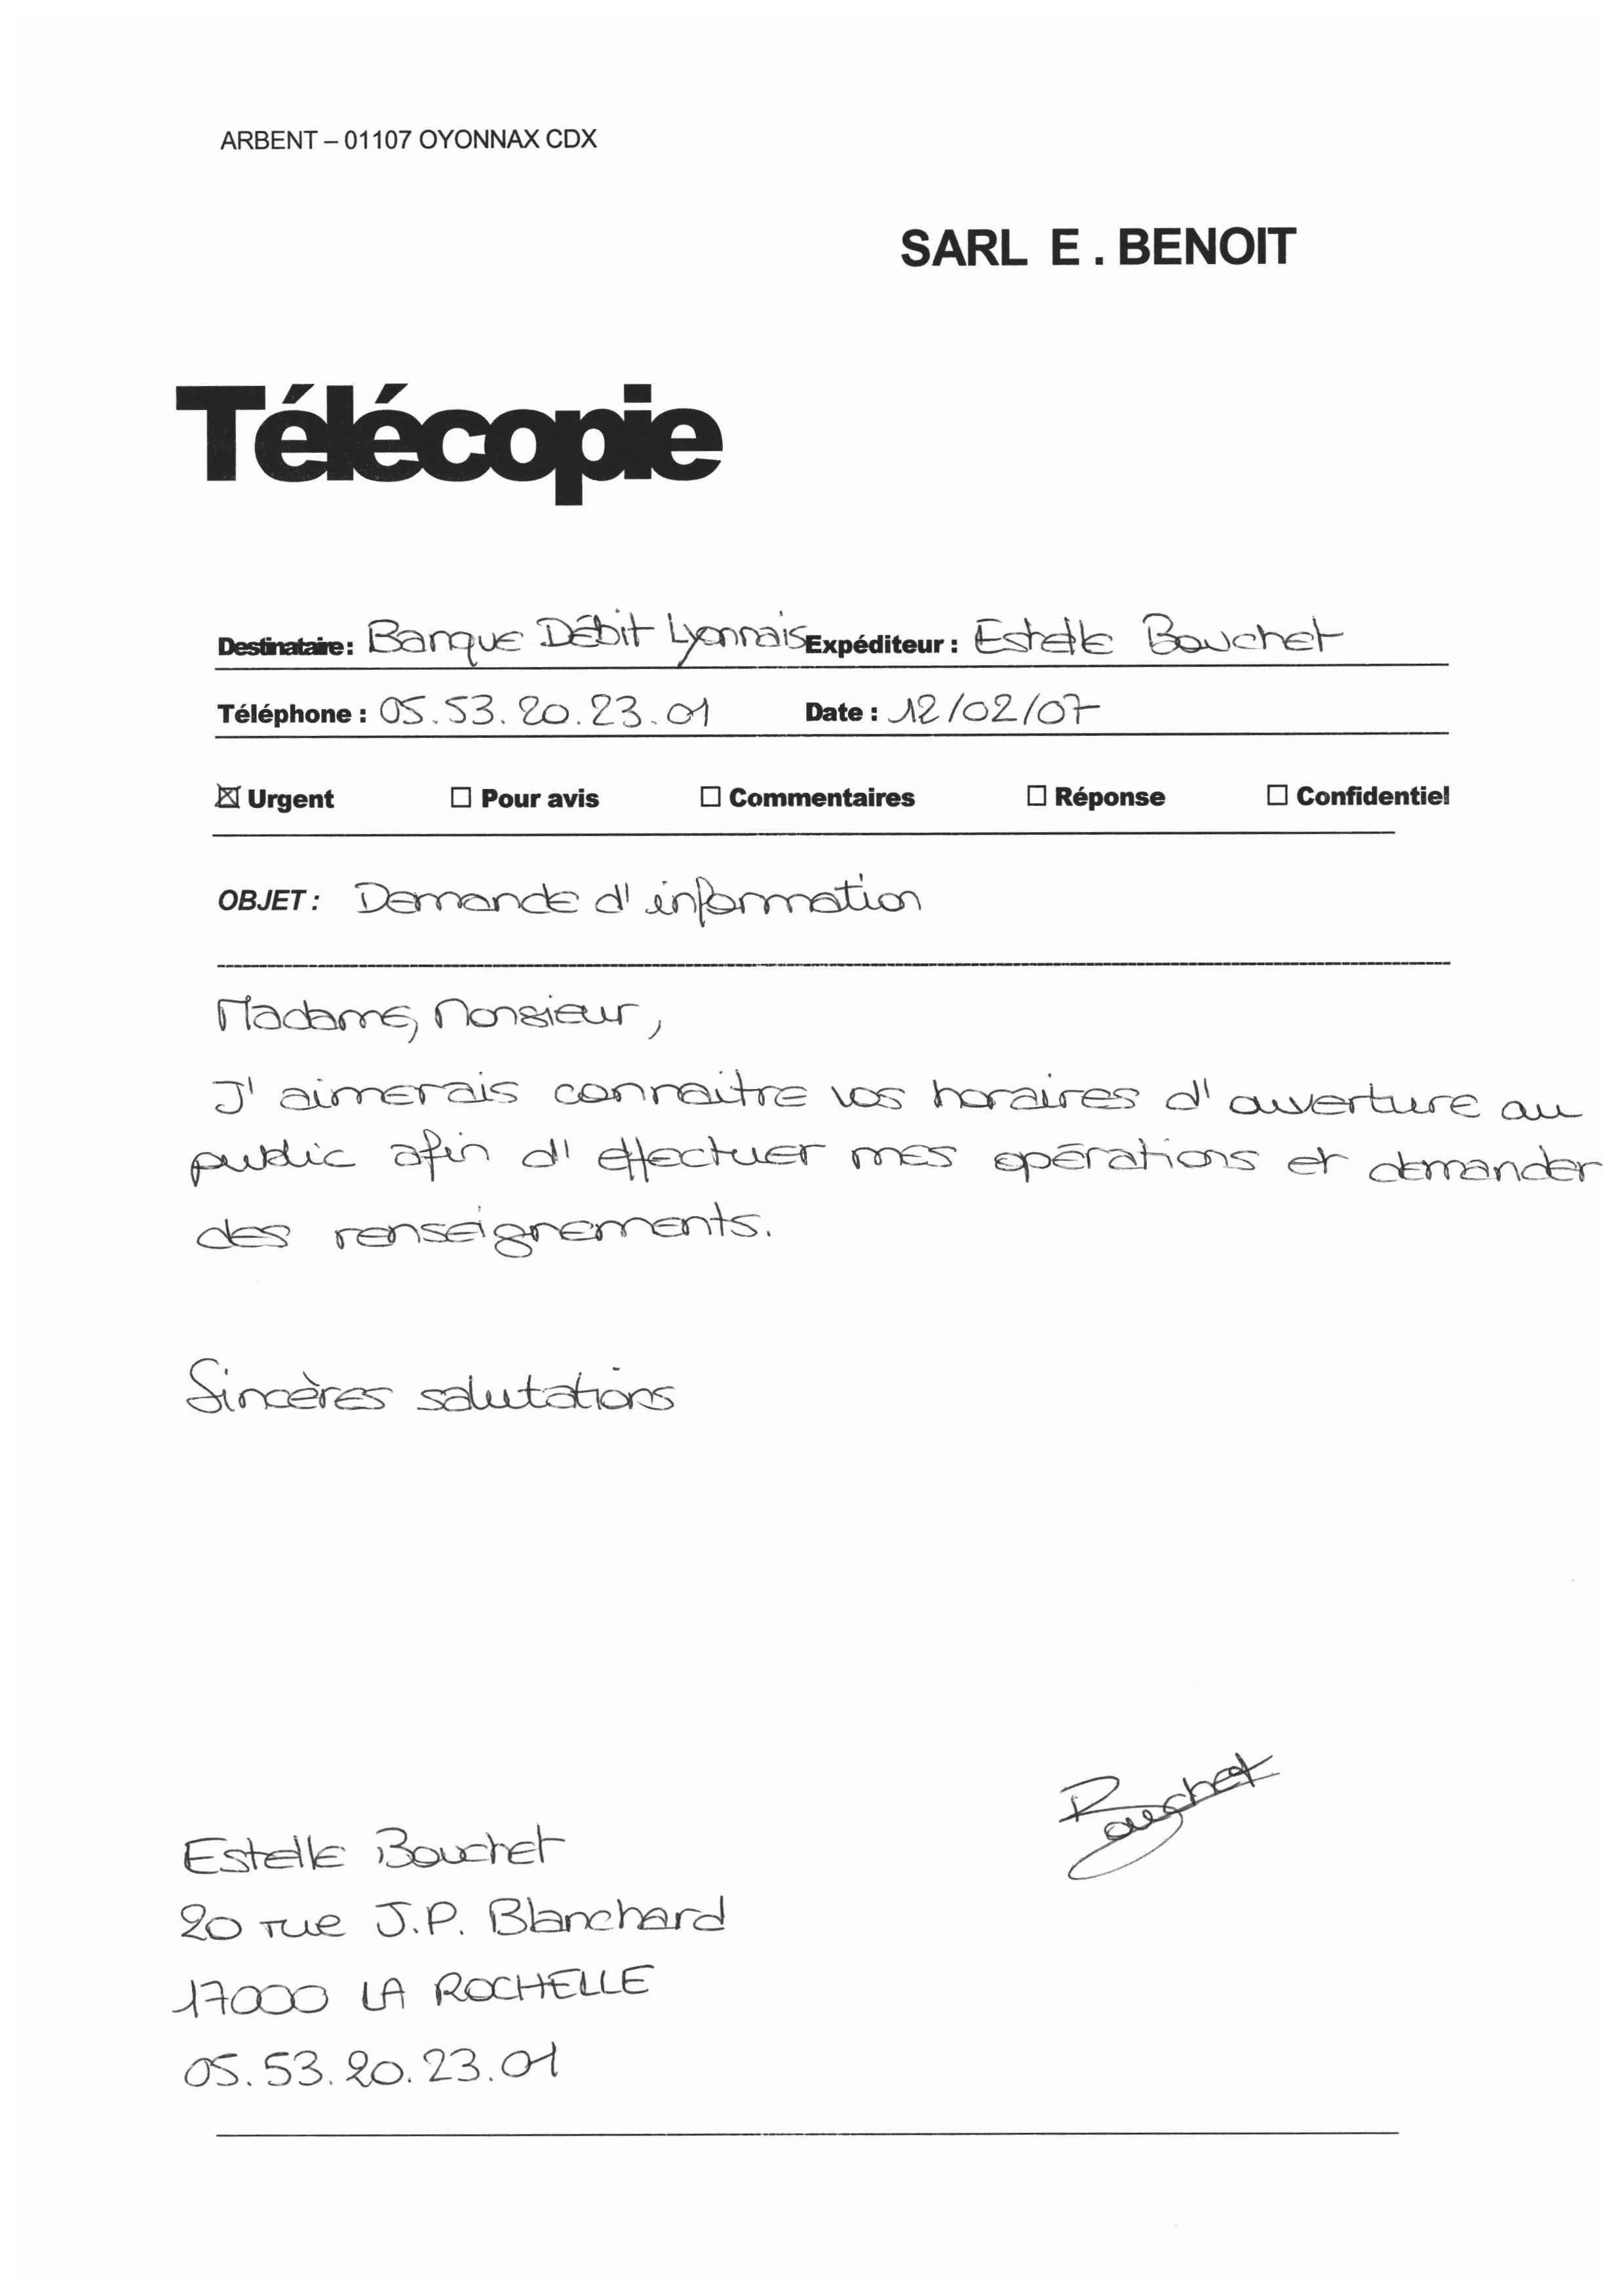 ARBENT – 01107 OYONNAX CDX
SARL E . BENOIT
Télécopie
Destinataire : Banque Débit Lyonnais Expéditeur : Estelle Bouchet
Téléphone : 05.53.20.23.01 Date : 12/02/07
☒ Urgent ☐ Pour avis ☐ Commentaires ☐ Réponse ☐ Confidentiel
OBJET : Demande d'information
Madame, Monsieur,
J'aimerais connaitre vos horaires d'ouverture au
public afin d'effectuer mes opérations et demander
des renseignements.
Sincères salutations
Bouchet
Estelle Bouchet
20 rue J.P. Blanchard
17000 LA ROCHELLE
05.53.20.23.01